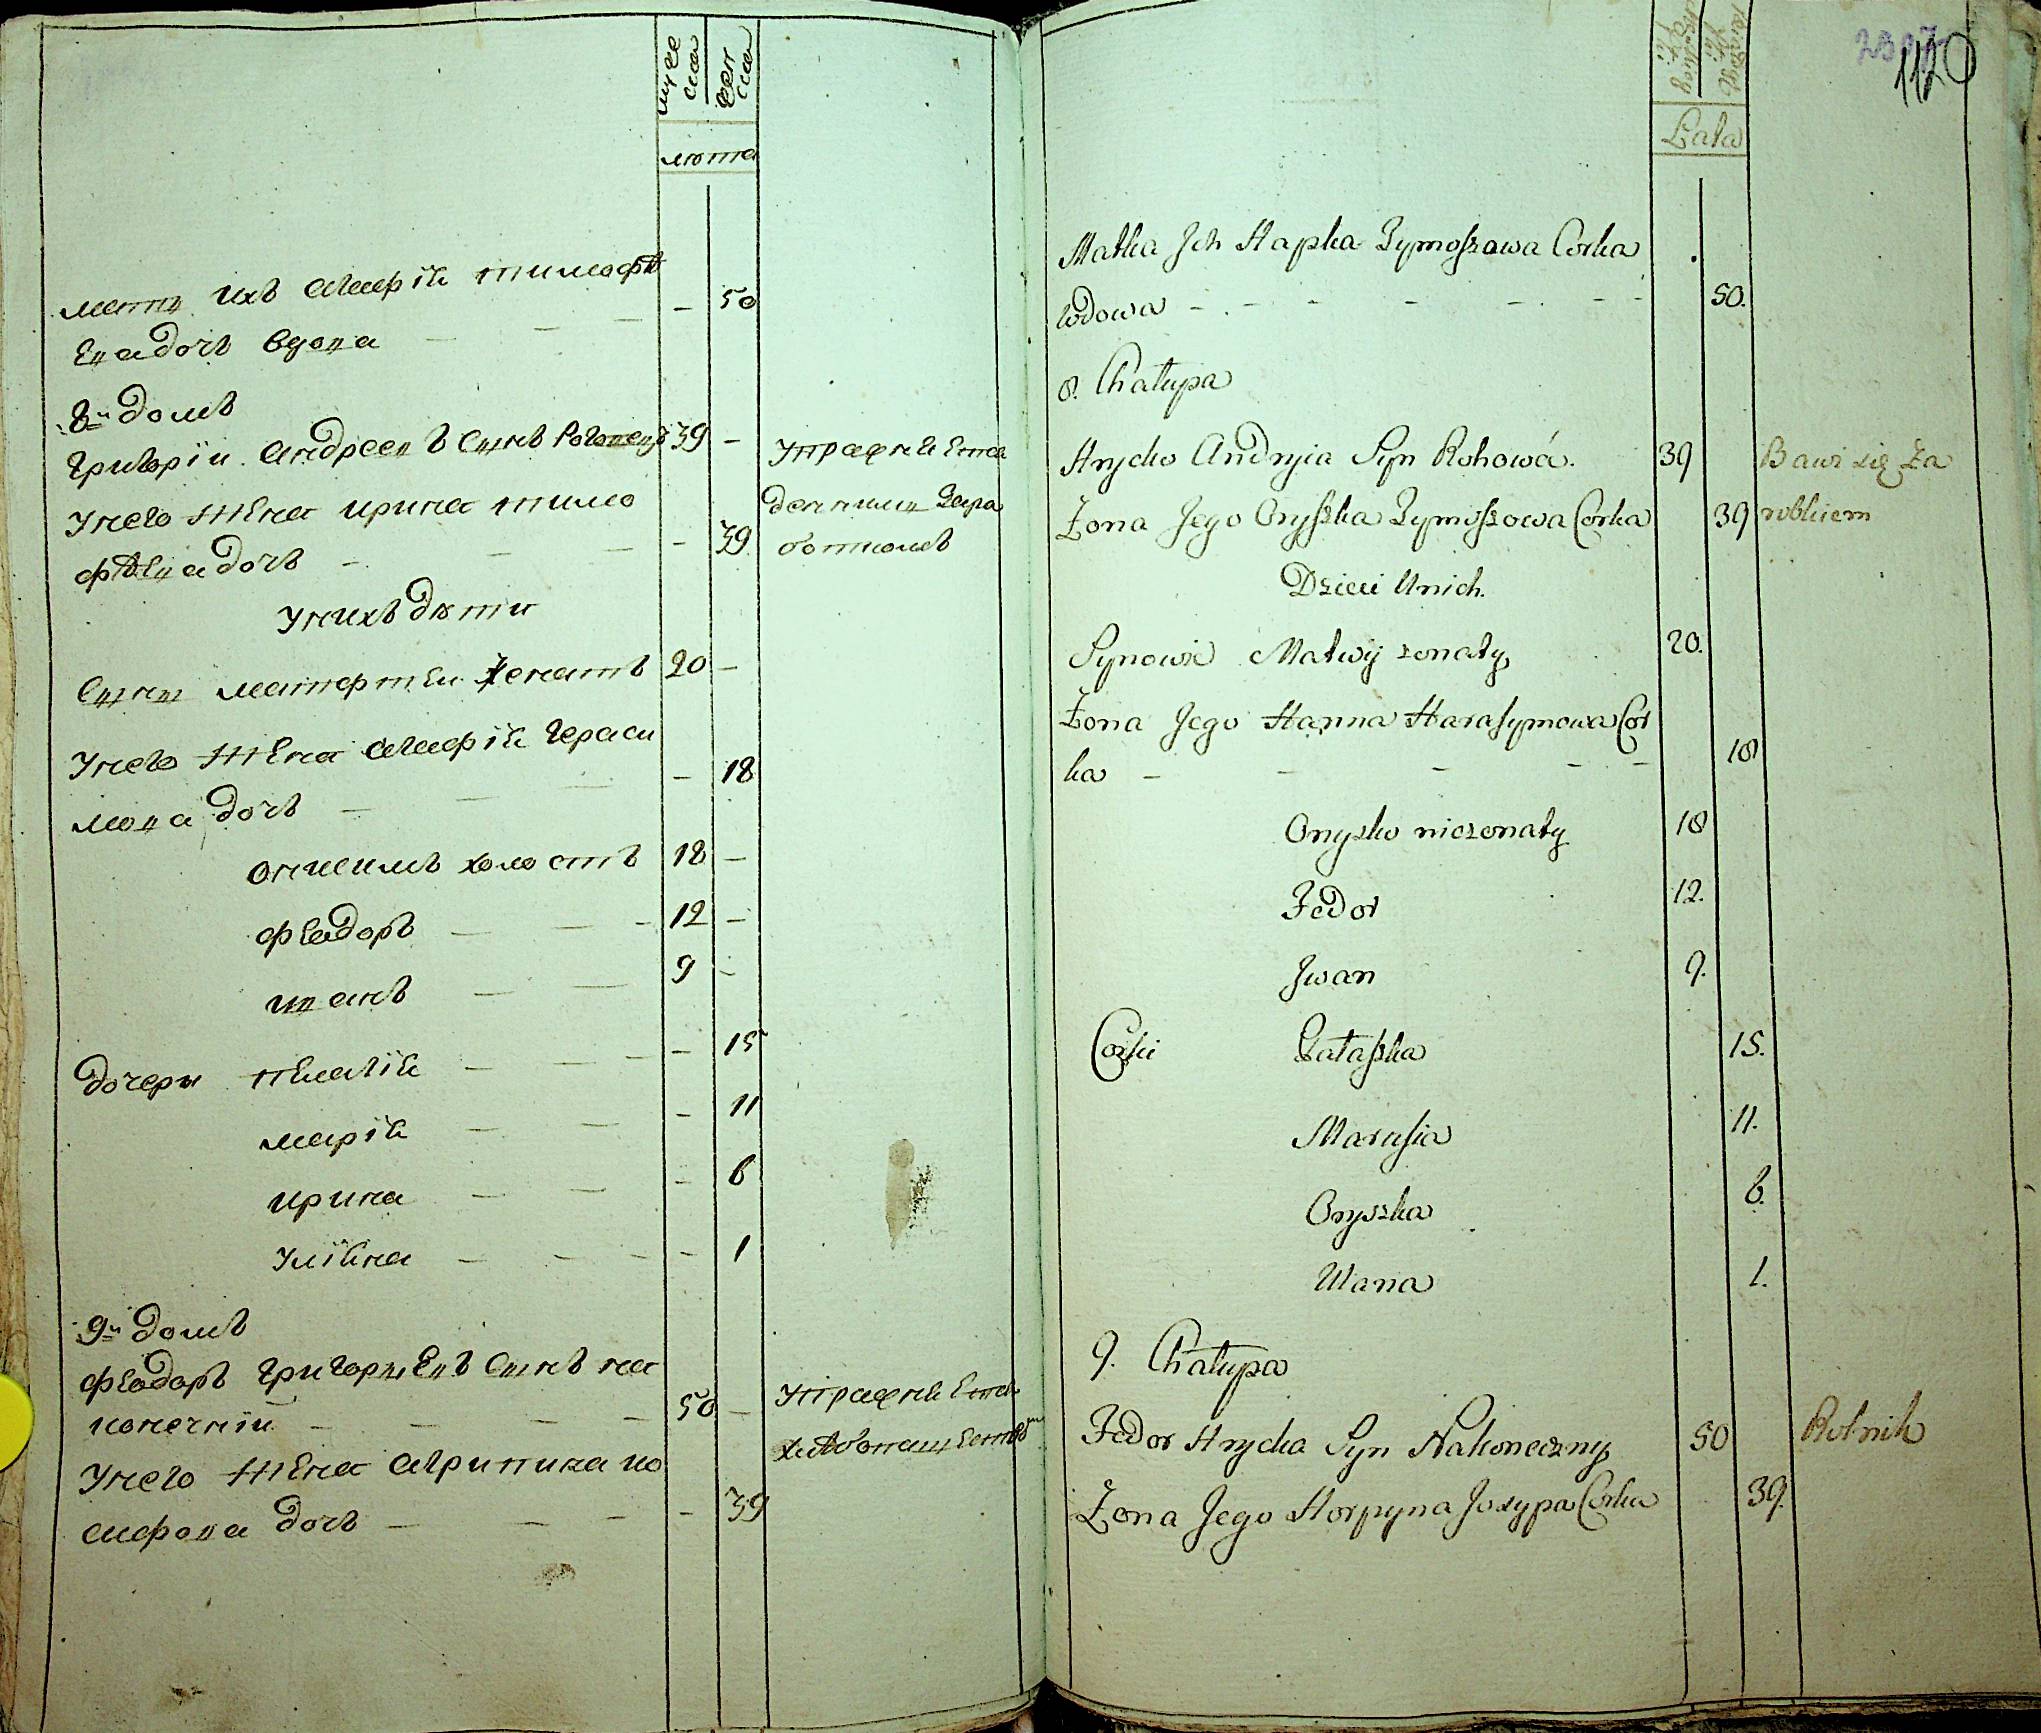 муже
ска
жен
ска
лѣта
мать ихъ Агафія тимофѣ
ева дочь вдова - - - - 50
8й домъ
григорій андреевъ сынъ Роговый 39 -
упражняется
У него жена ирина тимо
деннымъ Зара
фѣева дочь - - - - 39
боткомъ
У нихъ дѣти
Сыны матфей женатъ 20 -
У него жена Агафія гераси
мова дочь - - - - 18
онисимъ холостъ 18 -
феодоръ - - - 12 -
иванъ - - 9 -
дочери пелагія - - - - 15
марія - - - 11
ирина - - - 6
Уліяна - - - - 1
9й домъ
феодоръ григорьевъ сынъ на
конечній - - - - 50 -
упражняется
хлѣбопашествомъ
У него жена Агрипина ио
сифова дочь - - - - 39
1120
Lata
Matka Jch Hapka Tymoszowa Corka
wdowa - - - - - - 50.
8. Chałupa
Hrycko Andryia Syn Rohowá. 39 Bawi się Za
Żona Jego Oryszka Tymoszowa Corka 39 robkiem
Dzieci Unich.
Synowie Matwij zonaty 20.
Żona Jego Hanna Harasymowa Cor
ka - - - - - 18
Onysko niezonaty 18
Fedor 12.
Jwan 9.
Corki Pałaszka 15.
Marusia 11.
Oryszka 6.
Ulana 1.
9. Chałupa
Fedor Hrycka Syn Nakoneczny 50 Rolnik
Żona Jego Horpyna Josypa Corka 39.